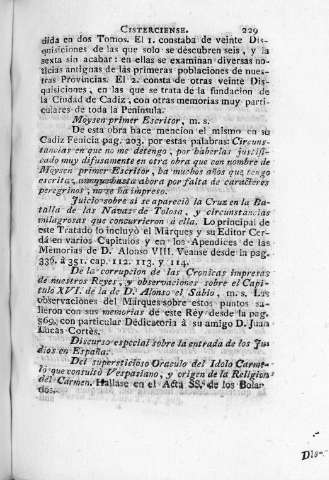 CISTERCIENSE. 229
dida en dos Tomos. El 1. constaba de veinte Dis-
quisiciones de las que solo se descubren seis, y la
sexta sin acabar: en ellas se examinan diversas no-
ticias antignas de las primeras poblaciones de nues-
tras Provincias. El 2. consta de otras veinte Dis-
quisiciones, en las que se trata de la fundacion de
la Ciudad de Cadiz, con otras memorias muy parti-
culares de toda la Peninsula.
Moysen primer Escritor, m. s.
De esta obra hace mencion el mismo en su
Cadiz Fenicia pag. 203. por estas palabras: Circuns-
tancias en que no me detengo, por haberlas justifi-
cado muy difusamente en otra obra que con nombre de
Moysen primer Escritor, ha muchos años que tengo
escrita, aunque hasta ahora por falta de caracteres
peregrinos, no se ha impreso.
Juicio sobre si se apareció la Cruz en la Ba-
talla de las Navas de Tolosa, y circunstancias
milagrosas que concurrieron á ella. Lo principal de
este Tratado lo incluyó el Marques y su Editor Cer-
dá en varios Capitulos y en los Apendices de las
Memorias de D. Alonso VIII. Veanse desde la pag.
336. á 351. cap. 112. 113. y 114.
De la corrupcion de las Cronicas impresas
de nuestros Reyes, y observaciones sobre el Capi-
tulo XVI. de la de D. Alonso el Sabio, m. s. Las
observaciones del Marques sobre estos puntos sa-
lieron con sus memorias de este Rey desde la pag.
569. con particular Dedicatoria à su amigo D. Juan
Lucas Cortès.
Discurso especial sobre la entrada de los Ju-
dios en España.
Del supersticioso Oraculo del Idolo Carme-
lo que consultó Vespasiano, y origen de la Religion
del Carmen. Hallase en el Acta SS. de los Bolan-
dos.
Dis-